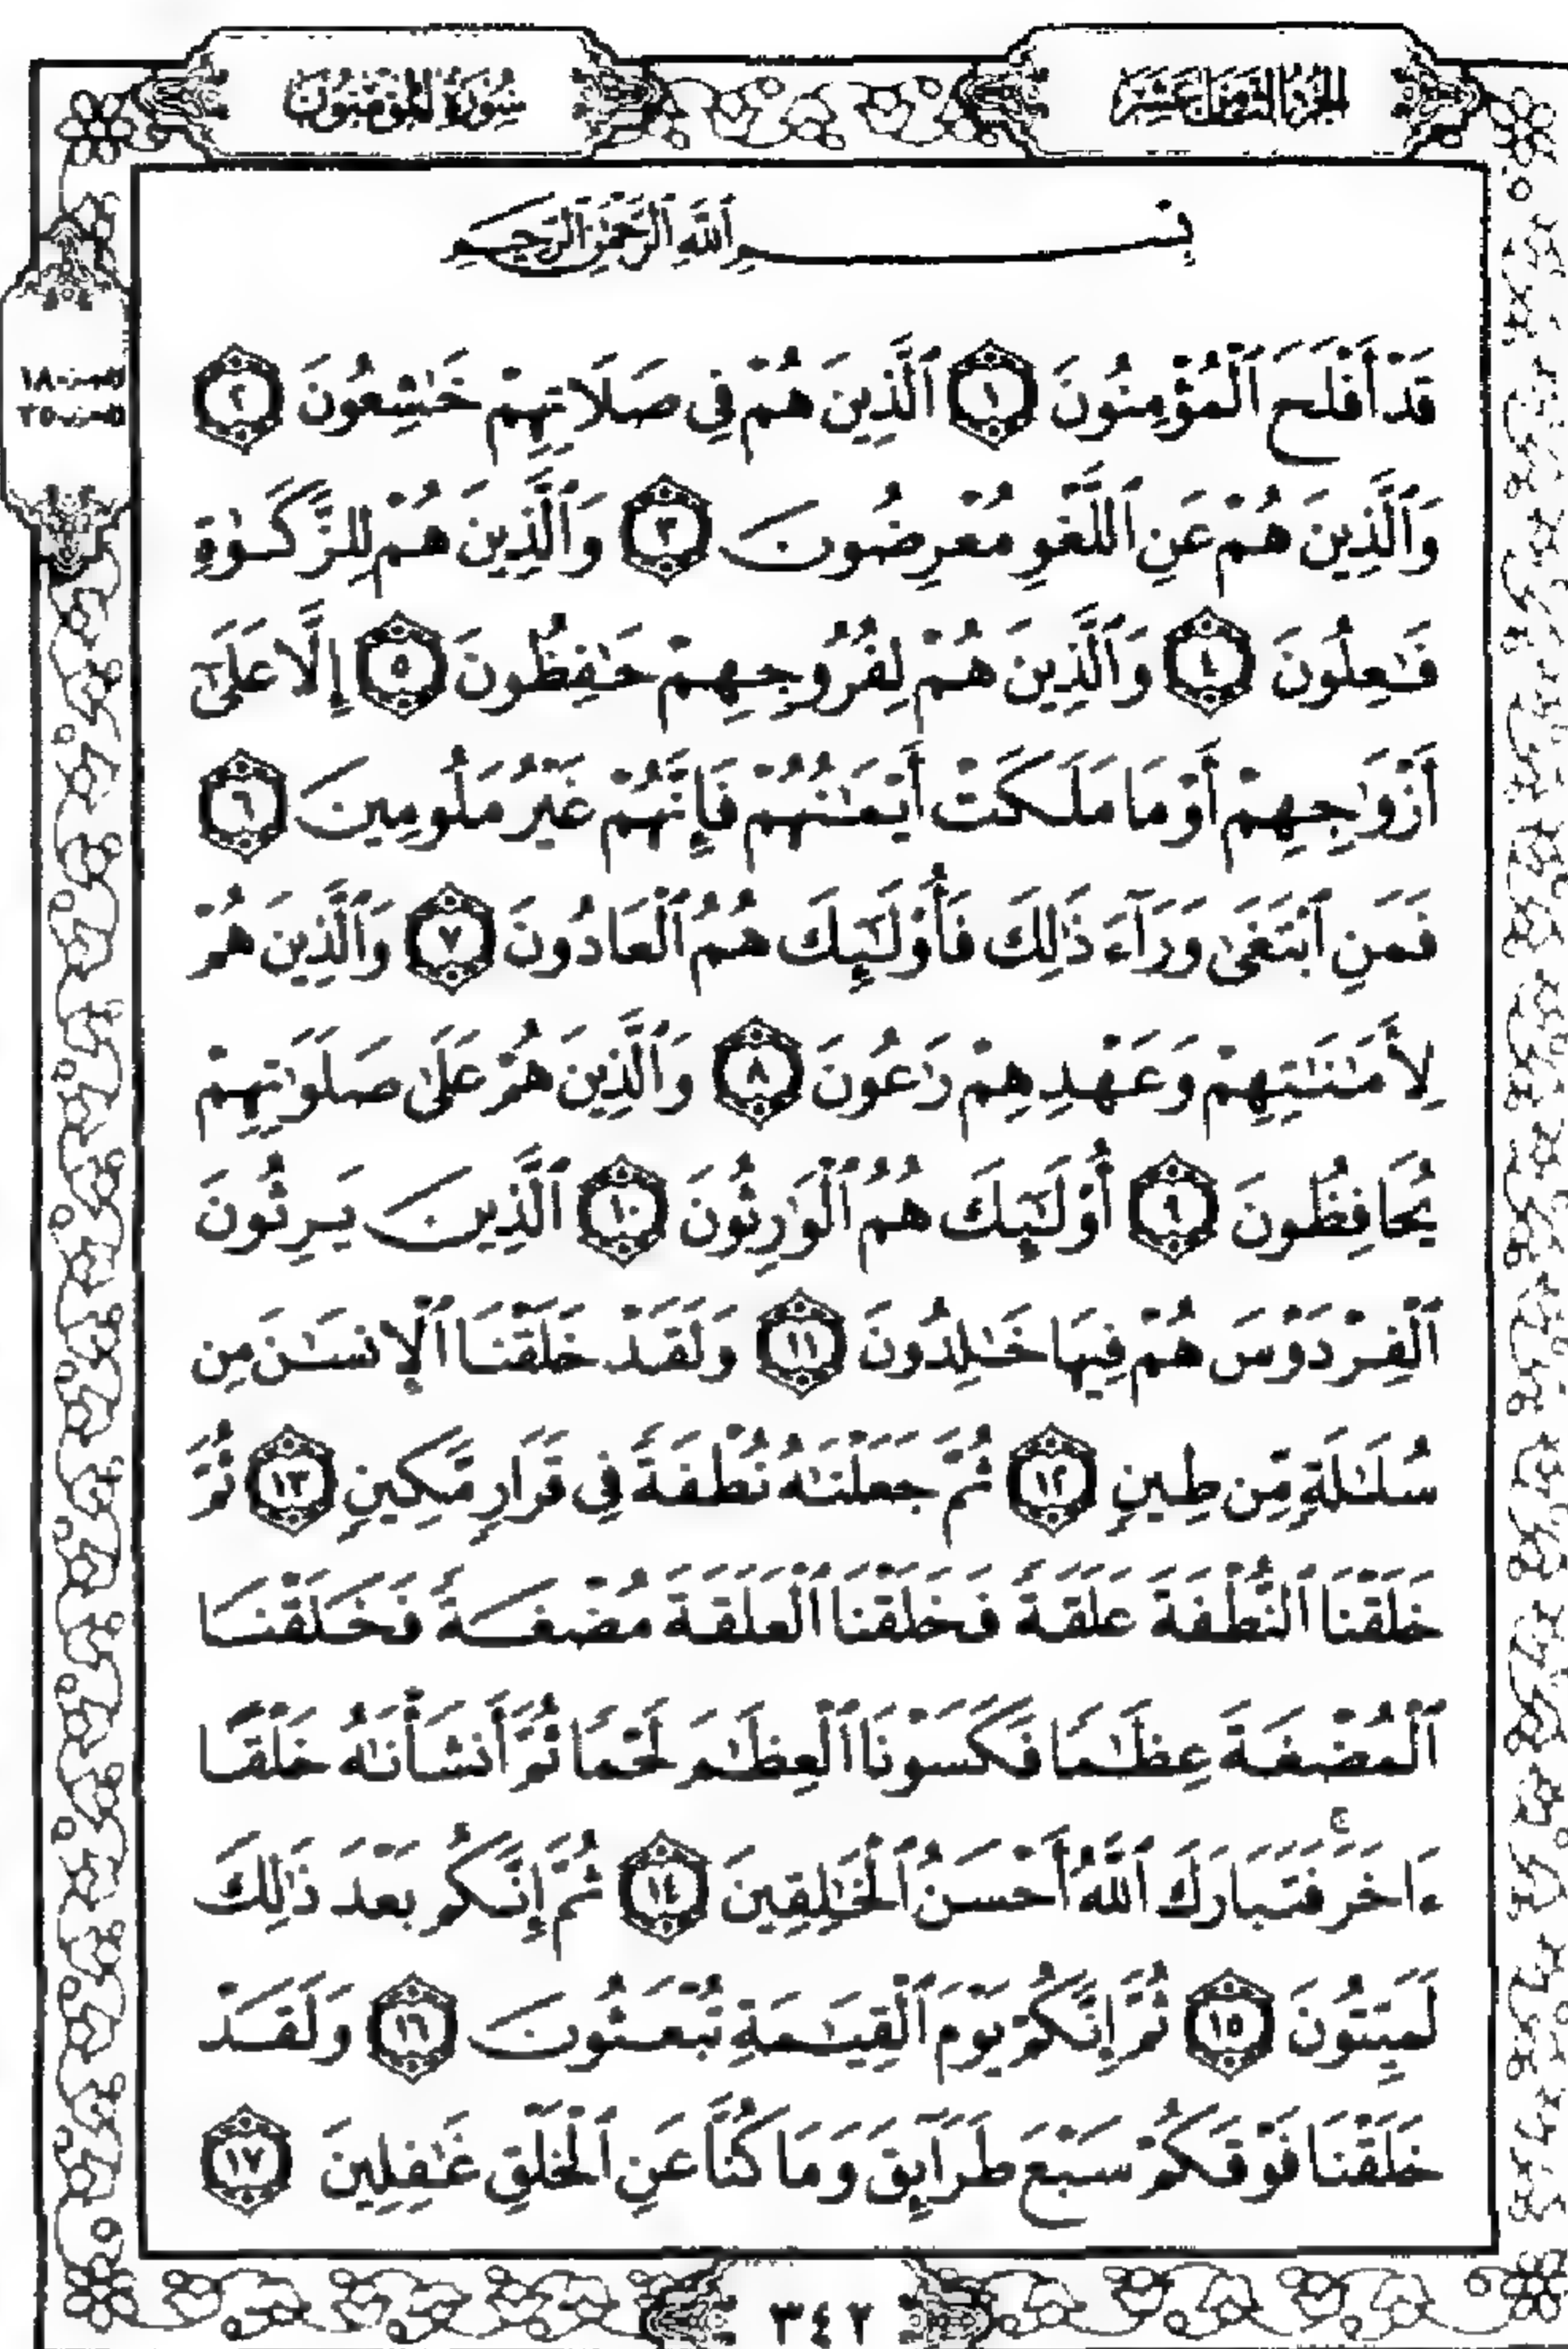 الجزء الثامن عشر
سورة المؤمنون
بِسْمِ ٱللَّهِ ٱلرَّحْمَٰنِ ٱلرَّحِيمِ
قَدْ أَفْلَحَ ٱلْمُؤْمِنُونَ ١ ٱلَّذِينَ هُمْ فِى صَلَاتِهِمْ خَٰشِعُونَ ٢
وَٱلَّذِينَ هُمْ عَنِ ٱللَّغْوِ مُعْرِضُونَ ٣ وَٱلَّذِينَ هُمْ لِلزَّكَوٰةِ
فَٰعِلُونَ ٤ وَٱلَّذِينَ هُمْ لِفُرُوجِهِمْ حَٰفِظُونَ ٥ إِلَّا عَلَىٰٓ
أَزْوَٰجِهِمْ أَوْ مَا مَلَكَتْ أَيْمَٰنُهُمْ فَإِنَّهُمْ غَيْرُ مَلُومِينَ ٦
فَمَنِ ٱبْتَغَىٰ وَرَآءَ ذَٰلِكَ فَأُو۟لَٰٓئِكَ هُمُ ٱلْعَادُونَ ٧ وَٱلَّذِينَ هُمْ
لِأَمَٰنَٰتِهِمْ وَعَهْدِهِمْ رَٰعُونَ ٨ وَٱلَّذِينَ هُمْ عَلَىٰ صَلَوَٰتِهِمْ
يُحَافِظُونَ ٩ أُو۟لَٰٓئِكَ هُمُ ٱلْوَٰرِثُونَ ١٠ ٱلَّذِينَ يَرِثُونَ
ٱلْفِرْدَوْسَ هُمْ فِيهَا خَٰلِدُونَ ١١ وَلَقَدْ خَلَقْنَا ٱلْإِنسَٰنَ مِن
سُلَٰلَةٍ مِّن طِينٍ ١٢ ثُمَّ جَعَلْنَٰهُ نُطْفَةً فِى قَرَارٍ مَّكِينٍ ١٣ ثُمَّ
خَلَقْنَا ٱلنُّطْفَةَ عَلَقَةً فَخَلَقْنَا ٱلْعَلَقَةَ مُضْغَةً فَخَلَقْنَا
ٱلْمُضْغَةَ عِظَٰمًا فَكَسَوْنَا ٱلْعِظَٰمَ لَحْمًا ثُمَّ أَنشَأْنَٰهُ خَلْقًا
ءَاخَرَ ۚ فَتَبَارَكَ ٱللَّهُ أَحْسَنُ ٱلْخَٰلِقِينَ ١٤ ثُمَّ إِنَّكُم بَعْدَ ذَٰلِكَ
لَمَيِّتُونَ ١٥ ثُمَّ إِنَّكُمْ يَوْمَ ٱلْقِيَٰمَةِ تُبْعَثُونَ ١٦ وَلَقَدْ
خَلَقْنَا فَوْقَكُمْ سَبْعَ طَرَآئِقَ وَمَا كُنَّا عَنِ ٱلْخَلْقِ غَٰفِلِينَ ١٧
٣٤٢